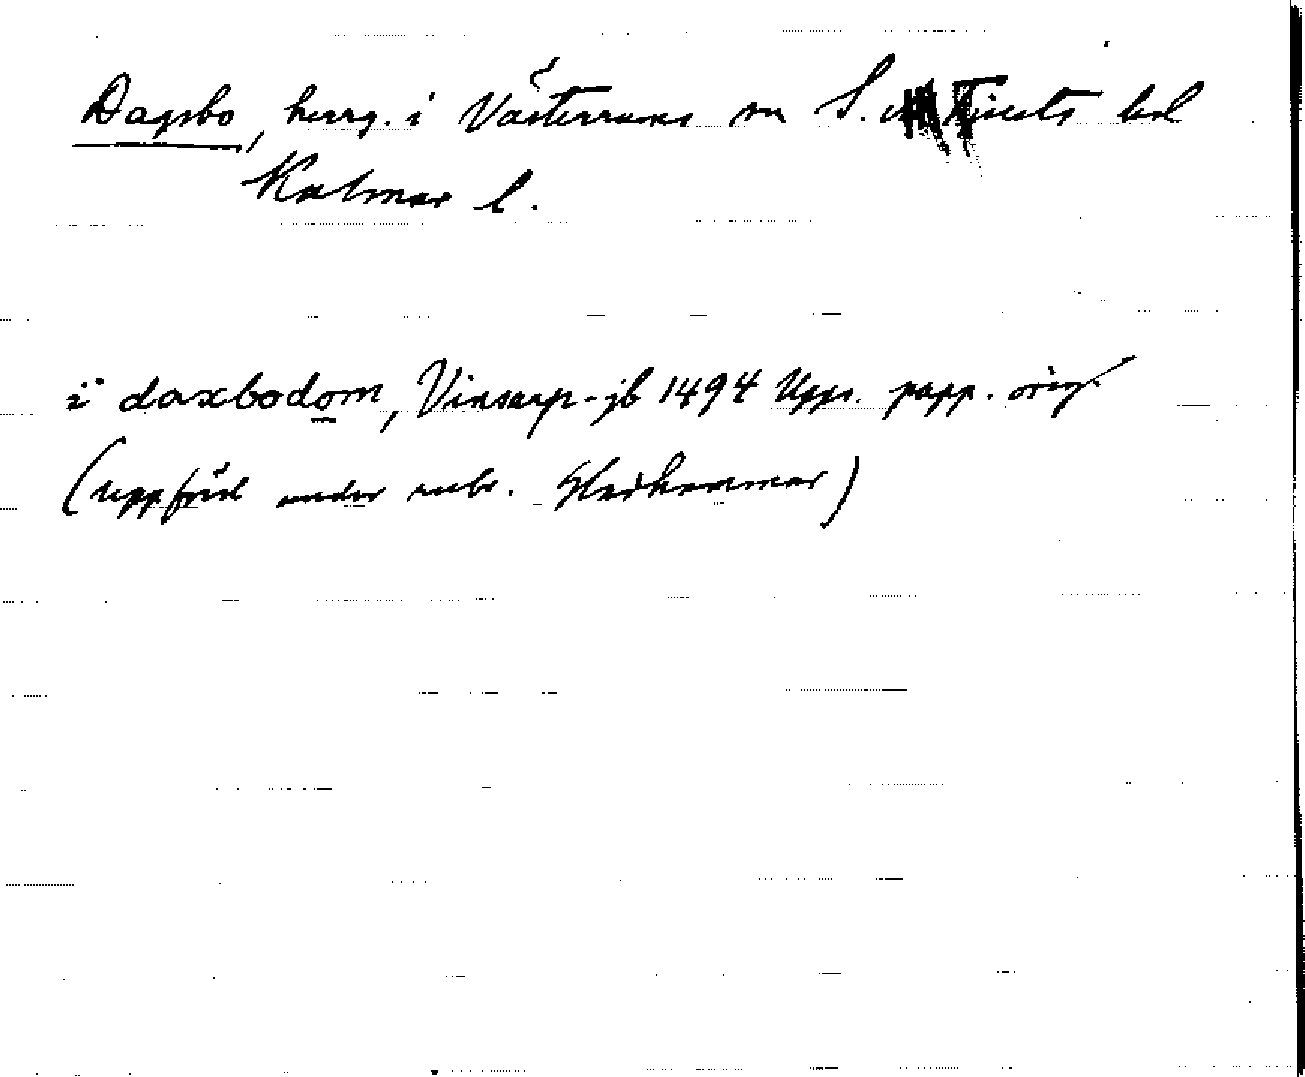 Dagsbo, herrg. i Västerrums sn S. Tjusts hd
Kalmar l.
i daxbodom, Vinsarp-jb 1494 Upps. papp. orig.
(uppförd under rubr. Hethenmar)